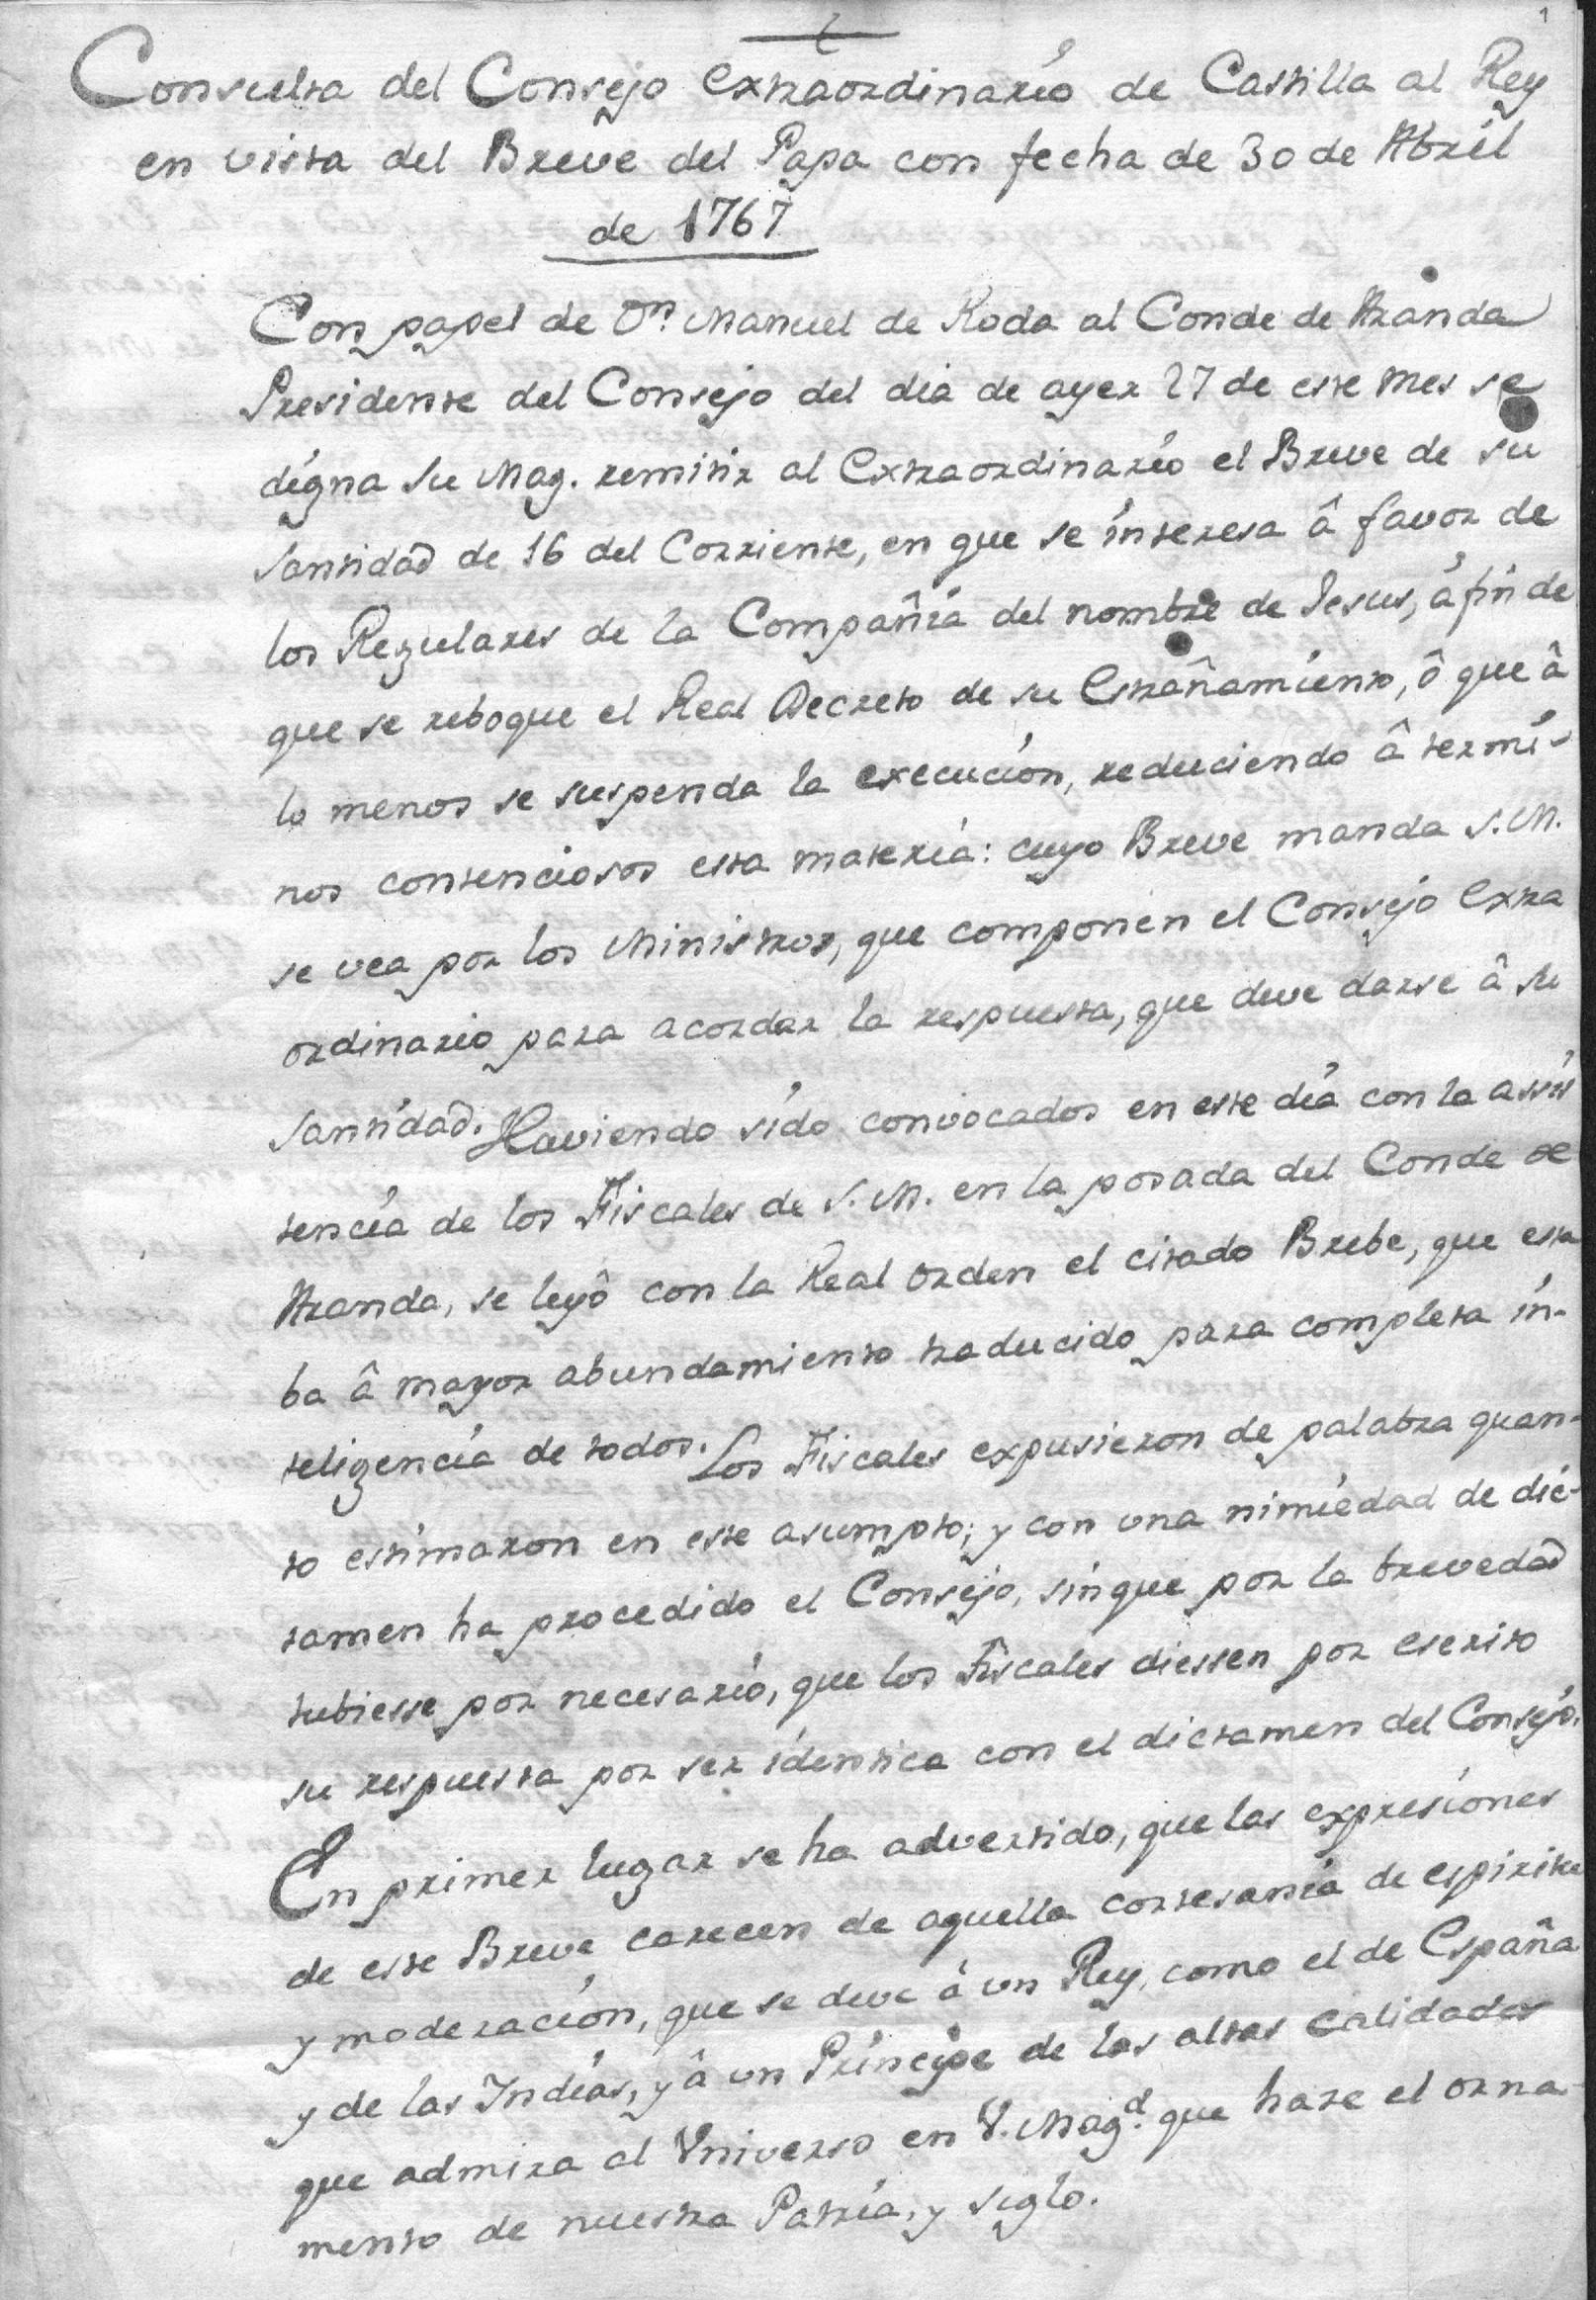 1
Consulta del Consejo Extraordinario de Castilla al Rey
en vista del Breve del Papa con fecha de 30 de Abril
de 1767
Con papel de Dn. Manuel de Roda al Conde de Aranda
Presidente del Consejo del dia de ayer 27 de este mes se
digna su Mag. remitir al Extraordinario el Breve de su
Santidad de 16 del Corriente, en que se interesa â favor de
los Regulares de la Compañia del nombre de Jesus, â fin de
que se reboque el Real Decreto de su Estrañamiento, ô que â
lo menos se suspenda la execucion, reduciendo â termi-
nos contenciosos esta materia: cuyo Breve manda S.M.
se vea por los Ministros, que componen el Consejo Extra
ordinario para acordar la respuesta, que deve darse â su
Santidad. Haviendo sido convocados en este dia con la assis
tencia de los Fiscales de S.M. en la posada del Conde de
Aranda, se leyô con la Real orden el citado Brebe, que esta
ba â mayor abundamiento traducido para completa in-
teligencia de todos. Los Fiscales expusieron de palabra quan-
to estimaron en este asumpto; y con una nimiedad de dic-
tamen ha procedido el Consejo, sin que por la brevedad
tubiesse por necesario, que los Fiscales diessen por escrito
su respuesta por ser identica con el dictamen del Consejo.
En primer lugar se ha advertido, que las expresiones
de este Breve carecen de aquella cortesania de espiritu
y moderacion, que se deve â un Rey, como el de España
y de las Indias, y â un Principe de las altas calidades
que admira al Vniverso en V. Magd. que haze el orna
mento de nuestra Patria, y siglo.